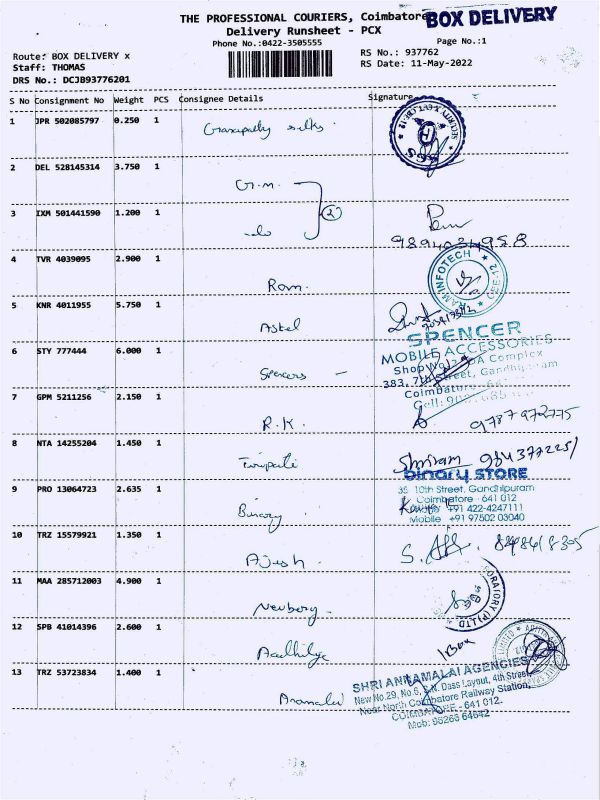 THE PROFESSIONAL COURIERS, Coimbatore
BOX DELIVERY
Delivery Runsheet - PCX
Phone No.:0422-3505555
Page No.:1
Route: BOX DELIVERY x
RS No.: 937762
Staff: THOMAS
RS Date: 11-May-2022
DRS No.: DCJB93776201
S No Consignment No Weight PCS Consignee Details Signature
1 JPR 502085797 0.250 1
silks
2 DEL 528145314 3.750 1
G.M.
3 IXM 501441590 1.200 1 (2)
-do
9894034958
4 TVR 4039095 2.900 1
RAM INFOTECH
CBE-12
Ram.
5 KNR 4011955 5.750 1
Askel
SPENCER
6 STY 777444 6.000 1
MOBILE ACCESSORIES
Complex
383, 7th Street, Gandhipuram
Spencers -
Coimbatore
7 GPM 5211256 2.150 1
R.K.
9787972775
8 NTA 14255204 1.450 1
Shriram 9843772251
Tirupati
binary STORE
9 PRO 13064723 2.635 1
35 10th Street, Gandhipuram
Coimbatore - 641 012
+91 422-4247111
Mobile +91 97502 03040
Binary
10 TRZ 15579921 1.350 1
Ajesh.
11 MAA 285712003 4.900 1
ORATORY (P) LTD
Newberg.
12 SPB 41014396 2.600 1
1 Box
Aadhitya
13 TRZ 53723834 1.400 1
SHRI ANNAMALAI AGENCIES
New No.29, No.6, S.N. Dass Layout, 4th Street,
Near North Coimbatore Railway Station,
COIMBATORE - 641 012.
Mob: 98266 64642
Anamalai